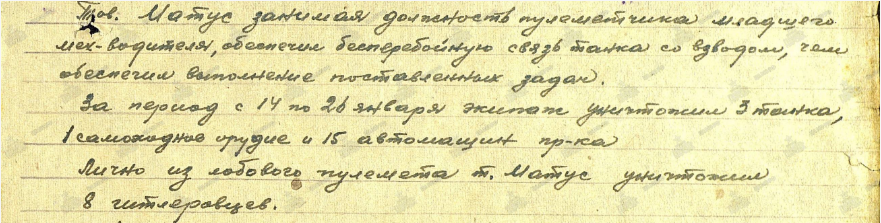 Тов. Матус занимая должность пулеметчика младшего
мех-водителя, обеспечил бесперебойную связь танка со взводом, чем
обеспечил выполнение поставленных задач.
За период с 14 по 26 января экипаж уничтожил 3 танка,
1 самоходное орудие и 15 автомашин пр-ка
Лично из лобового пулемета т. Матус уничтожил
8 гитлеровцев.